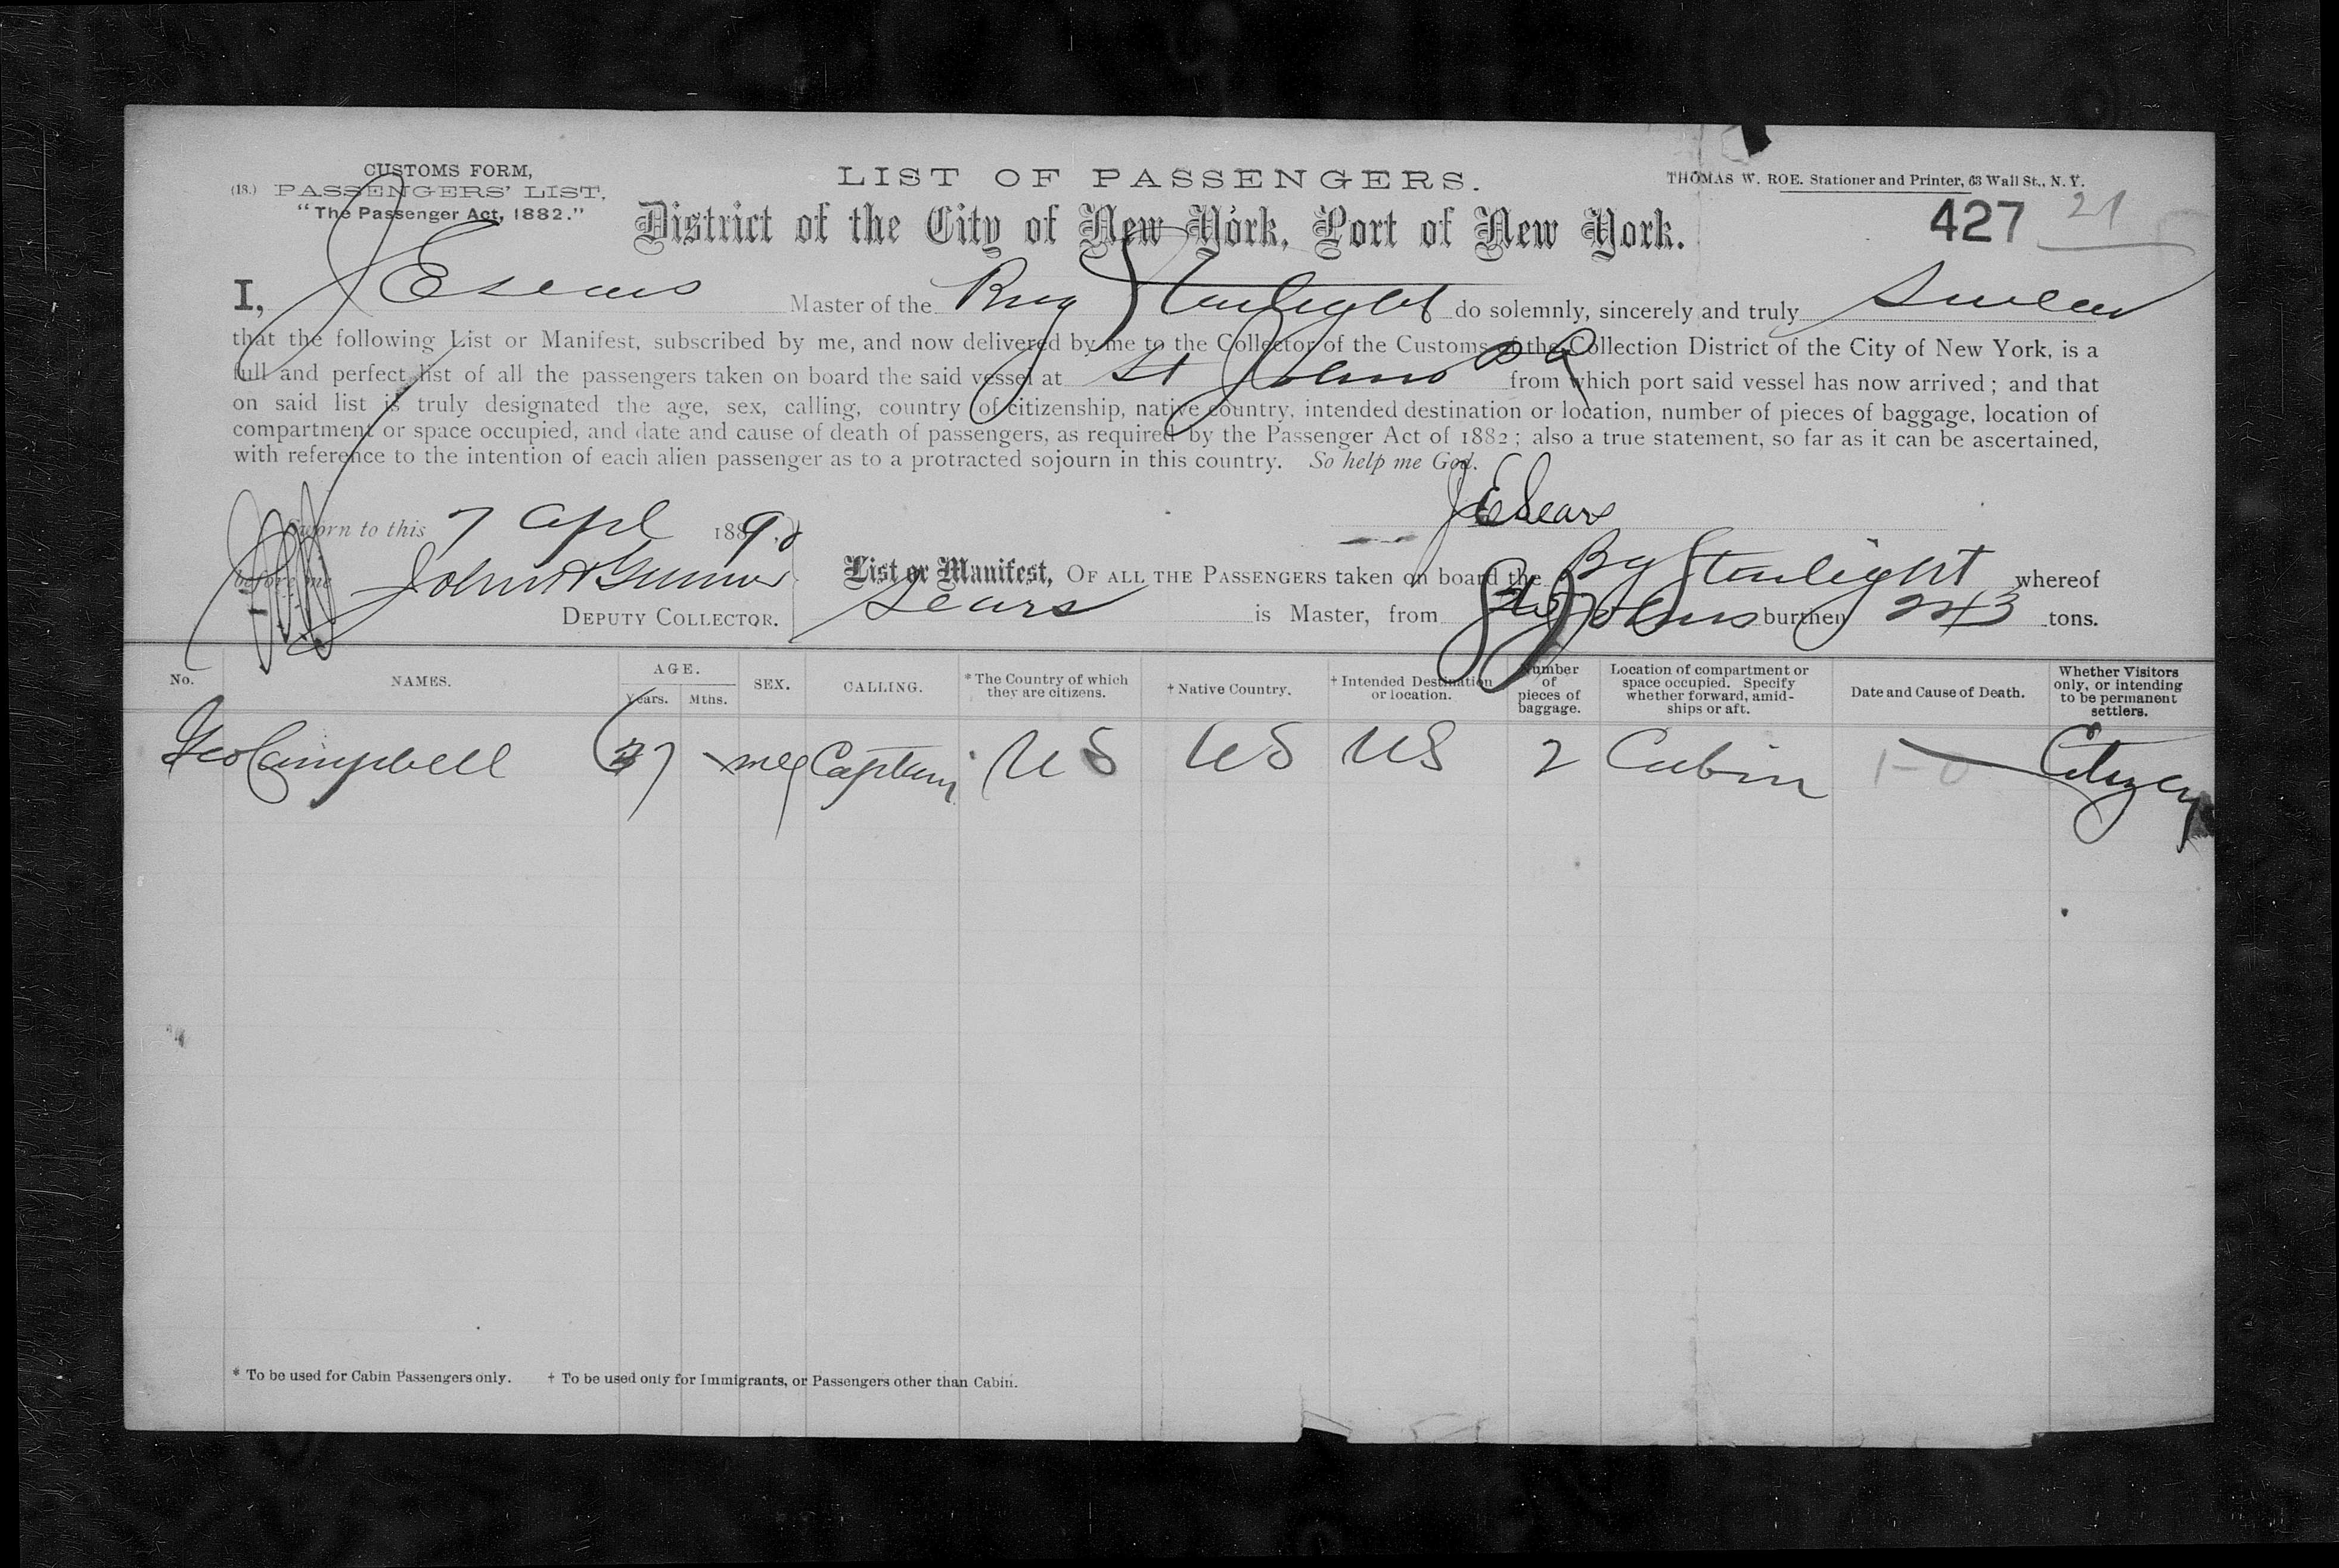 CUSTOMS FORM,
(18.) PASSENGERS' LIST.
"The Passenger Act, 1882."
LIST OF PASSENGERS.
THOMAS W. ROE. Stationer and Printer, 63 Wall St., N. Y.
District of the City of New York, Port of New York.
427 21
I, J E Sears Master of the Brig Starlight do solemnly, sincerely and truly Swear
that the following List or Manifest, subscribed by me, and now delivered by me to the Collector of the Customs of the Collection District of the City of New York, is a
full and perfect list of all the passengers taken on board the said vessel at St Johns P R from which port said vessel has now arrived; and that
on said list is truly designated the age, sex, calling, country of citizenship, native country, intended destination or location, number of pieces of baggage, location of
compartment or space occupied, and date and cause of death of passengers, as required by the Passenger Act of 1882; also a true statement, so far as it can be ascertained,
with reference to the intention of each alien passenger as to a protracted sojourn in this country. So help me God.
J E Sears
Sworn to this 7 Apl 1890
before me John
DEPUTY COLLECTOR.
List or Manifest, OF ALL THE PASSENGERS taken on board the Bg Starlight whereof
Sears is Master, from St Johns burthen 243 tons.
No. NAMES. AGE. Years. Mths. SEX. CALLING. * The Country of which they are citizens. † Native Country. † Intended Destination or location. Number of pieces of baggage. Location of compartment or space occupied. Specify whether forward, amid-ships or aft. Date and Cause of Death. Whether Visitors only, or intending to be permanent settlers.
Geo Campbell 37 Captain US US US 2 Cabin Citizen
* To be used for Cabin Passengers only. † To be used only for Immigrants, or Passengers other than Cabin.